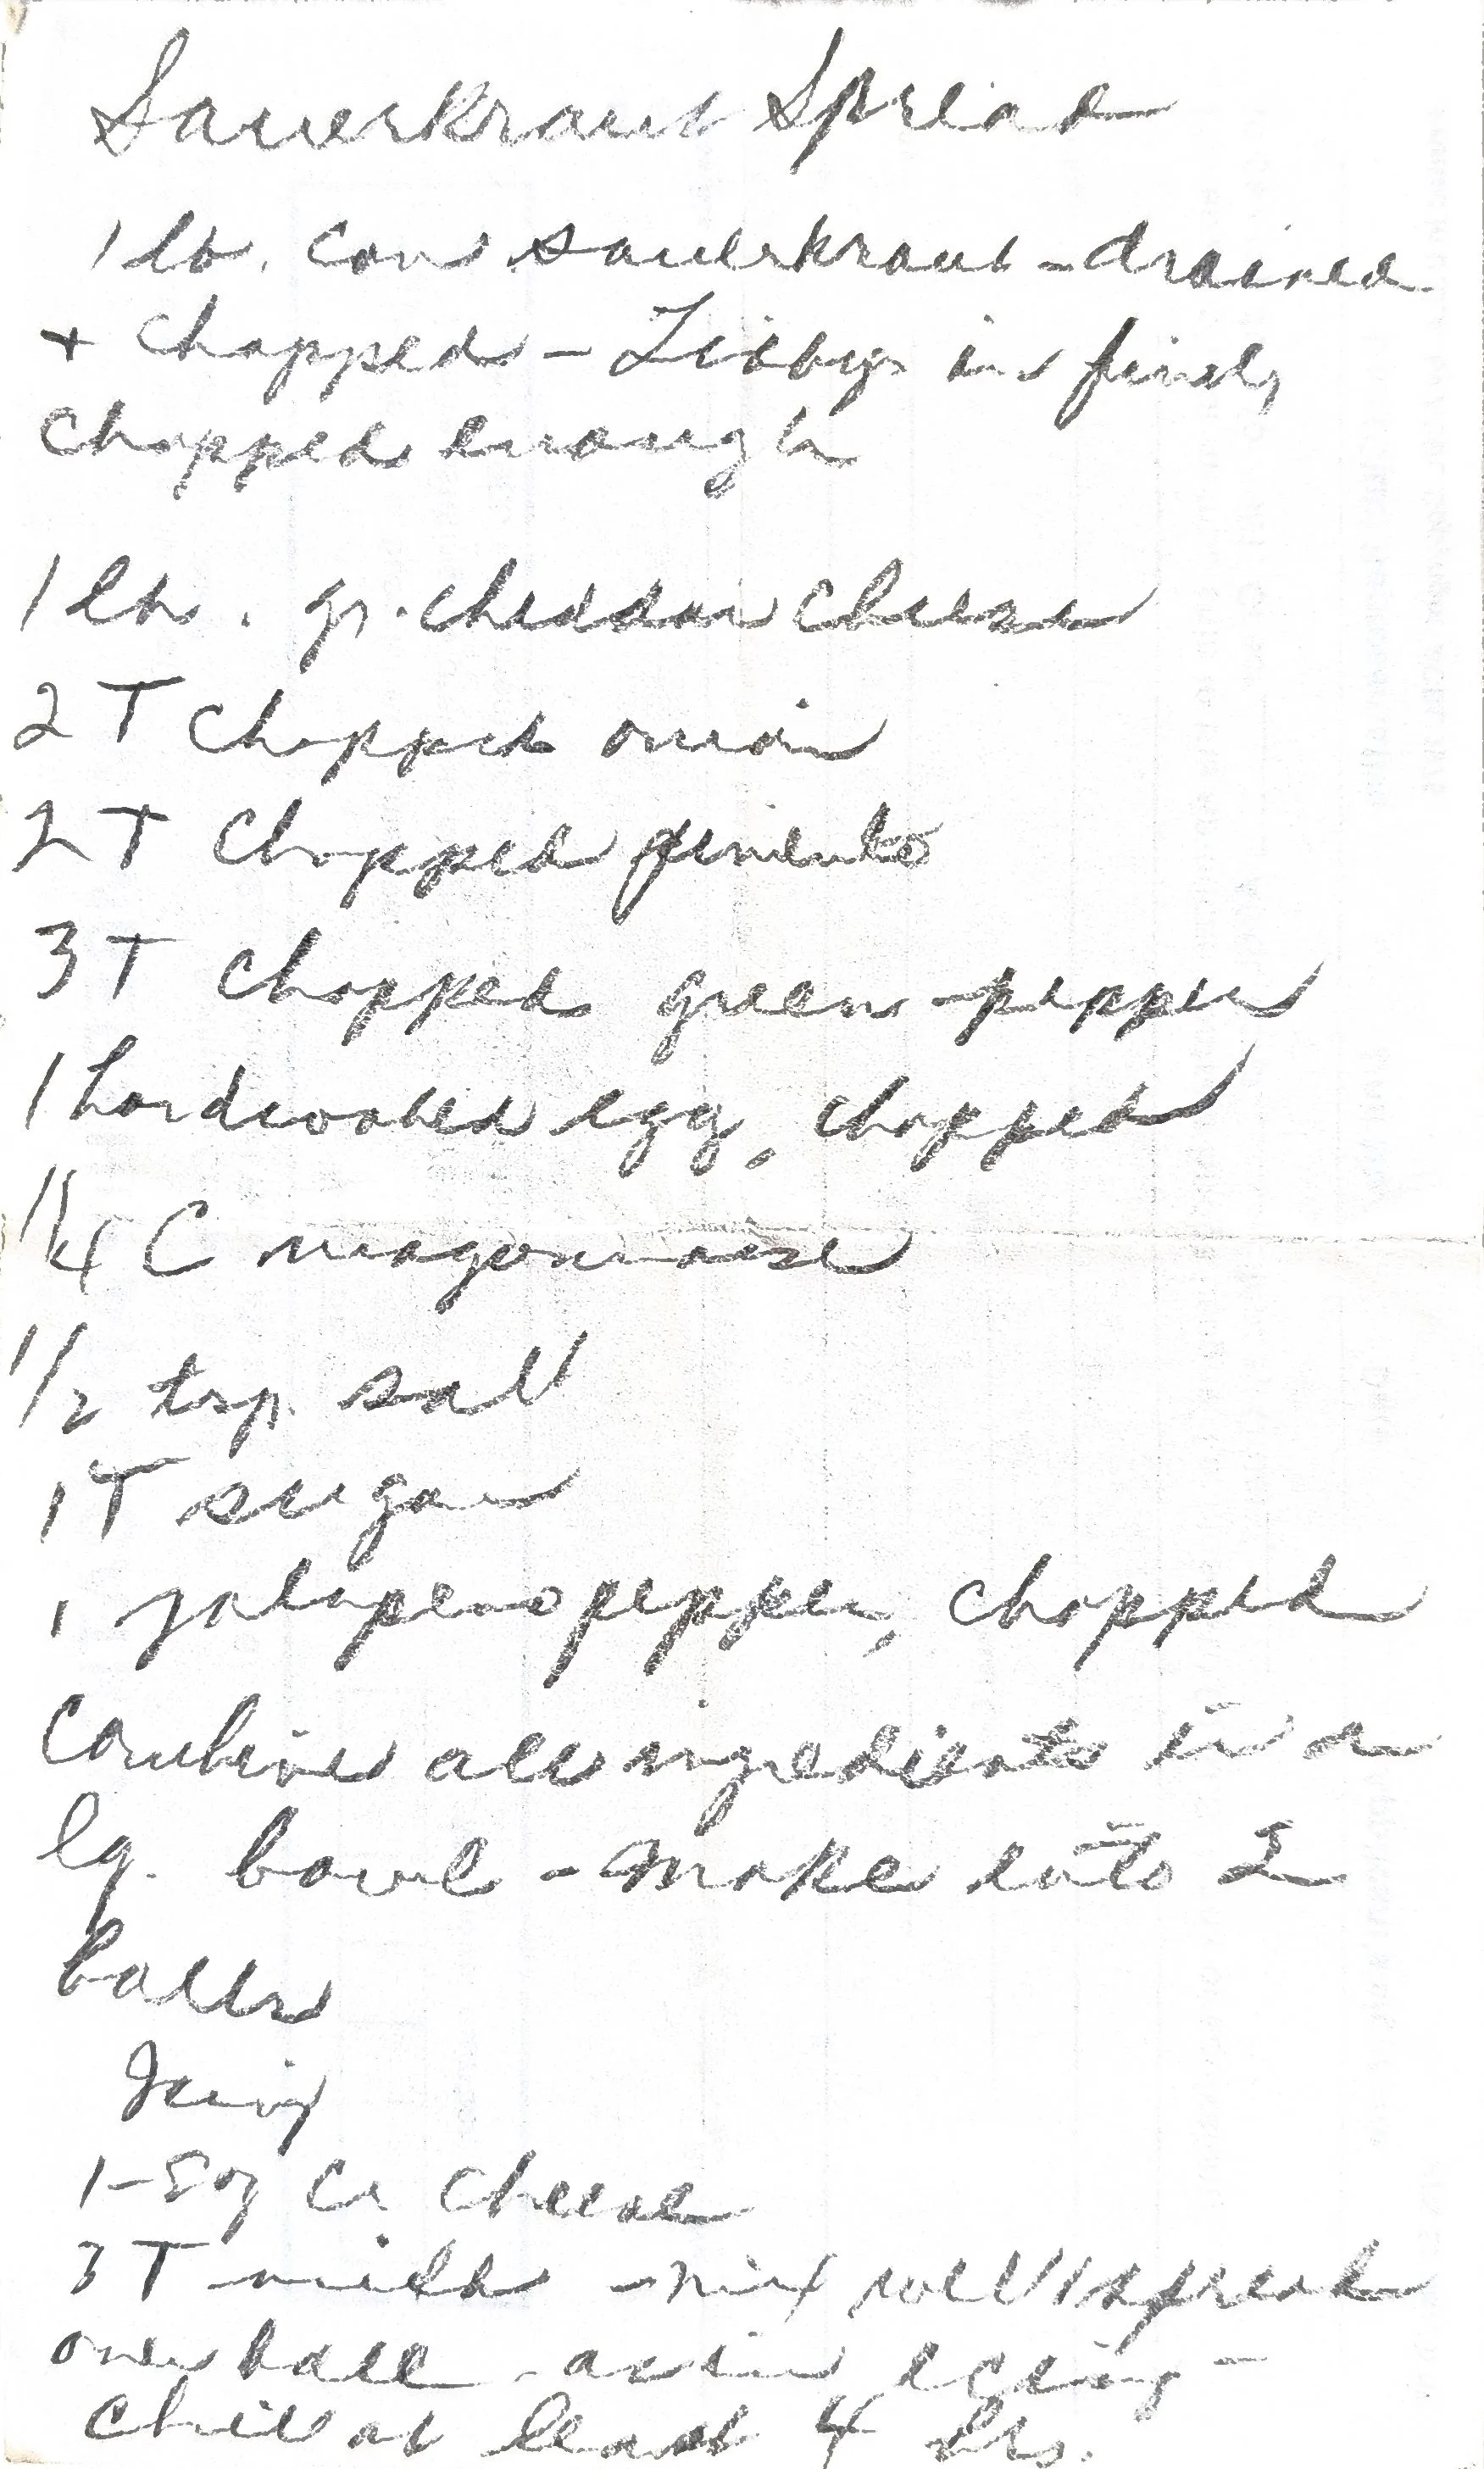 Sauerkraut Spread
1 lb. can sauerkraut - drained
+ chopped - Libbys is finely
chopped enough
1 lb. gr. cheddar cheese
2 T chopped onion
2 T chopped pimento
3 T chopped green pepper
1 hardcooked egg, chopped
1/4 C mayonnaise
1/2 tsp. salt
1 T sugar
1 jalapeno pepper, chopped
Combine all ingredients in a
lg. bowl - make into 2
balls
Icing
1 - 8 oz Cr. Cheese
3 T milk - mix well & spread
over ball as in icing -
chill at least 4 hrs.